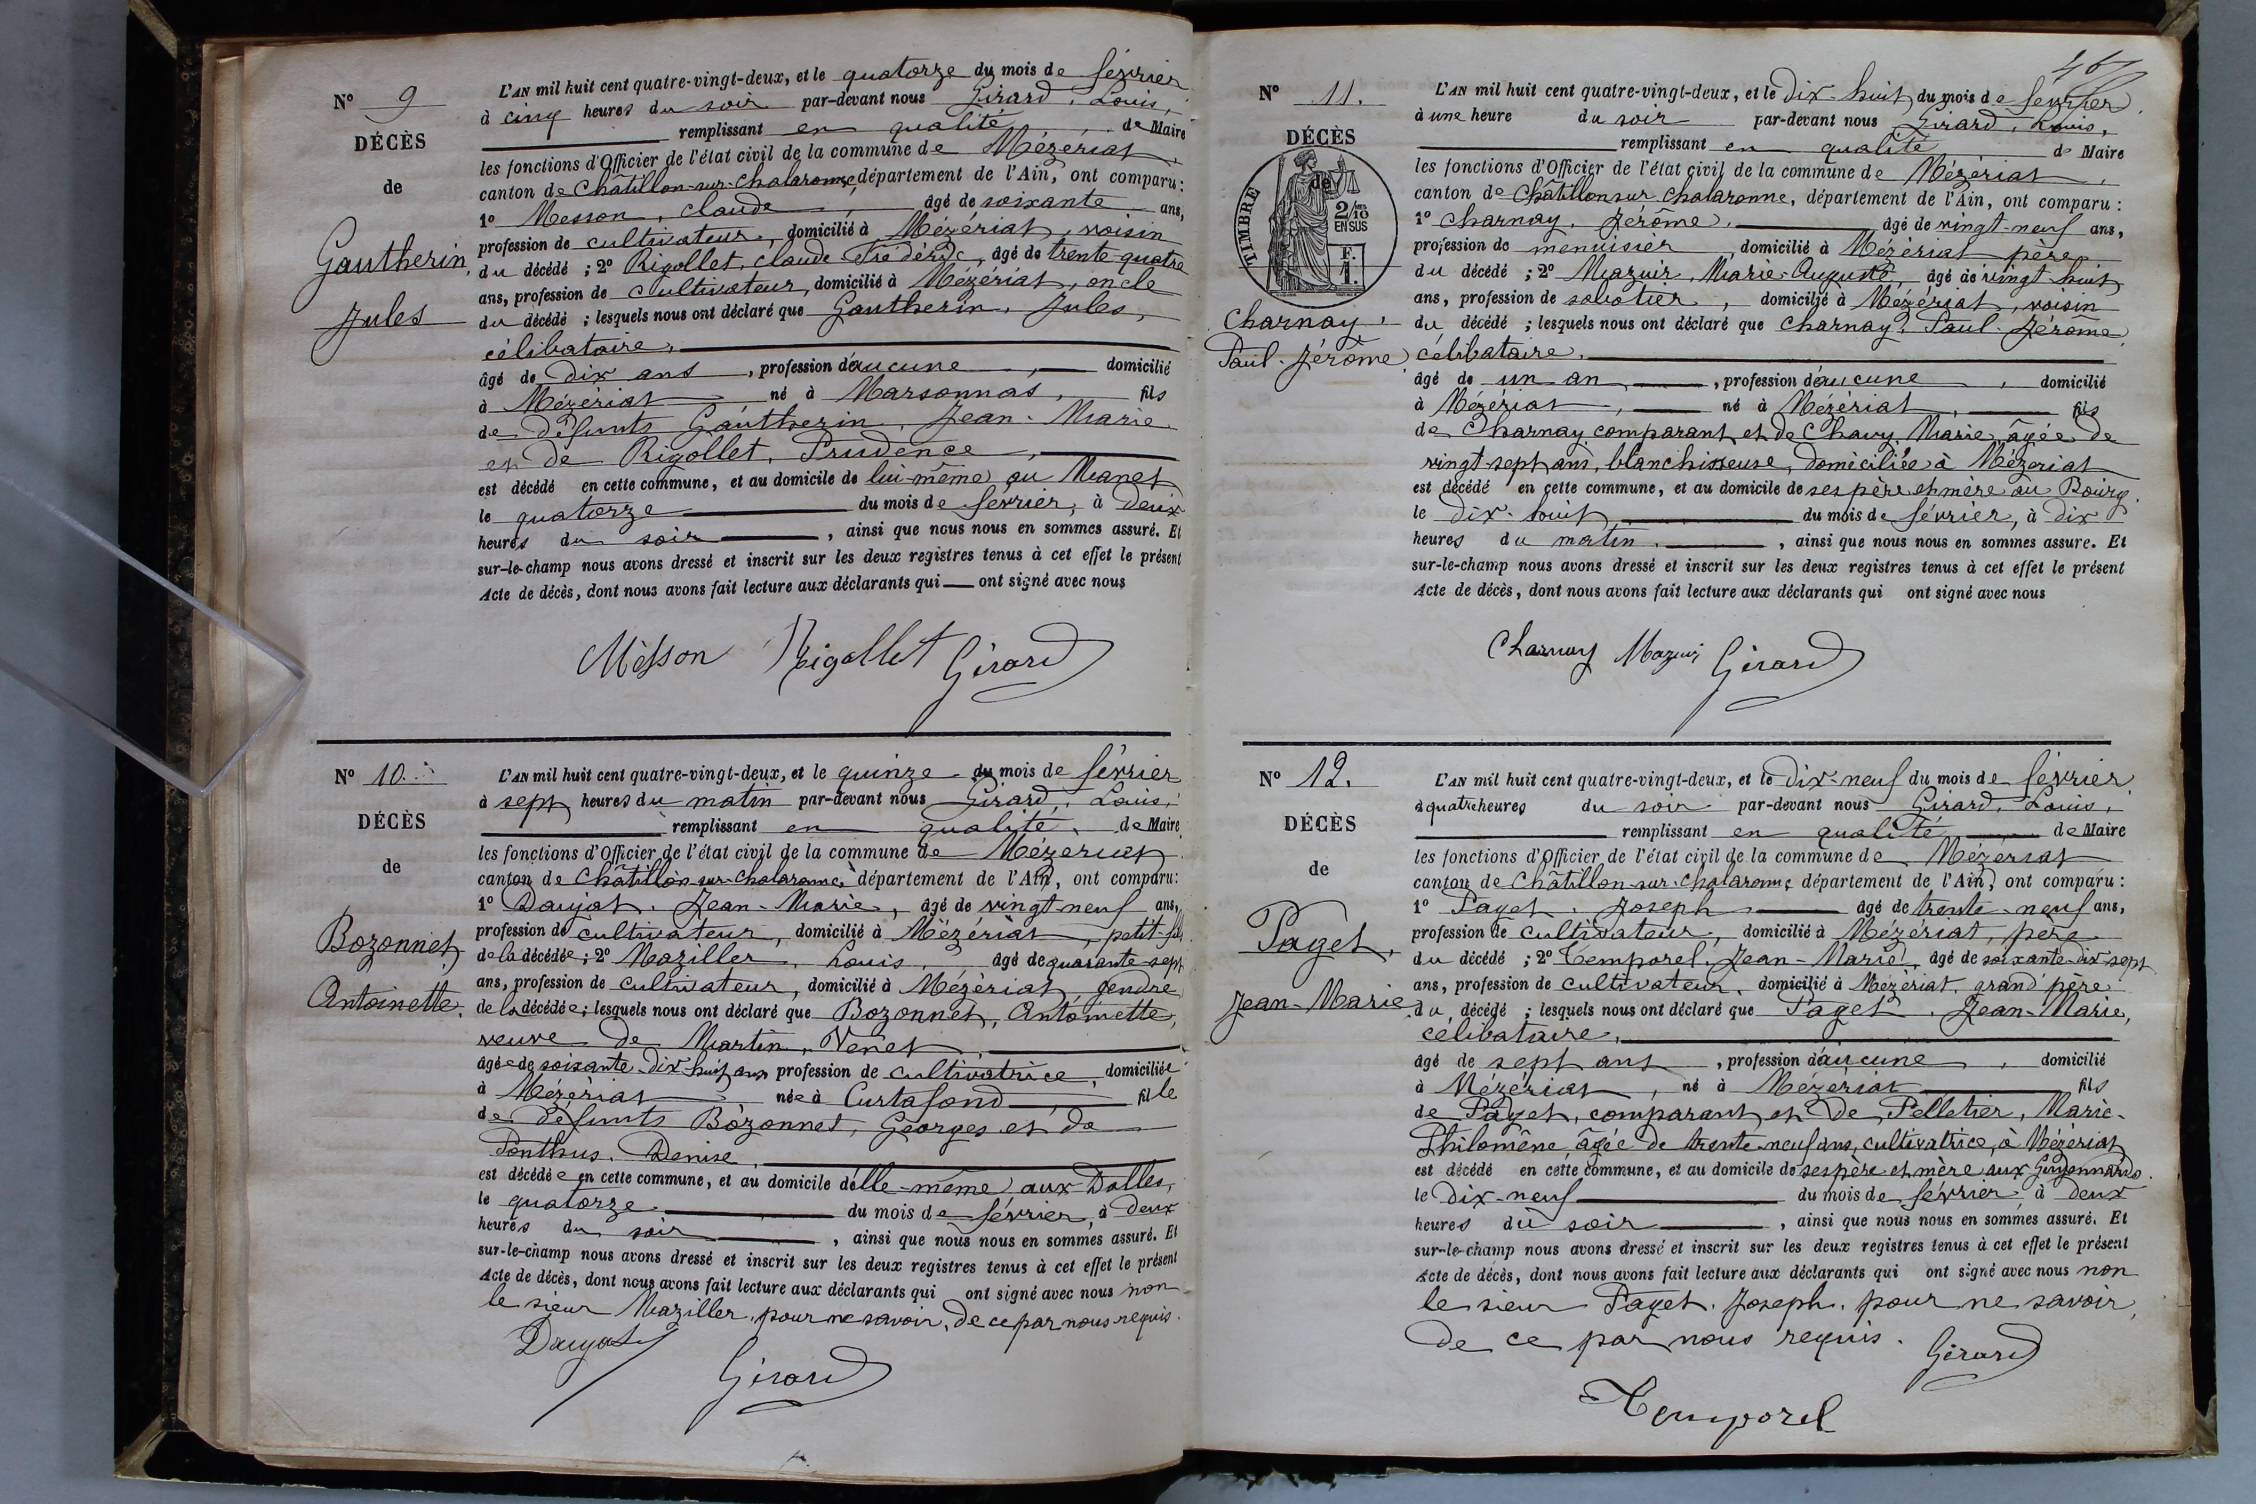 N° 9
DÉCÈS
de
Gautherin,
Jules
L'AN mil huit cent quatre-vingt-deux, et le quatorze du mois de février
à cinq heures du soir par-devant nous Girard, Louis,
remplissant en qualité de Maire
les fonctions d'Officier de l'état civil de la commune de Mézériat,
canton de Châtillon-sur-Chalaronne, département de l'Ain, ont comparu :
1° Messon, Claude, âgé de soixante ans,
profession de cultivateur, domicilié à Mézériat, voisin
du décédé ; 2° Rigollet, Claude Frédéric, âgé de trente-quatre
ans, profession de cultivateur, domicilié à Mézériat, oncle
du décédé ; lesquels nous ont déclaré que Gautherin, Jules,
célibataire,
âgé de dix ans, profession d'aucune, domicilié
à Mézériat né à Marsonnas, fils
de défunts Gautherin, Jean-Marie
et de Rigollet, Prudence,
est décédé en cette commune, et au domicile de lui-même au Manet
le quatorze du mois de février, à deux
heures du soir, ainsi que nous nous en sommes assuré. Et
sur-le-champ nous avons dressé et inscrit sur les deux registres tenus à cet effet le présent
Acte de décès, dont nous avons fait lecture aux déclarants qui — ont signé avec nous
Messon Rigollet Girard
N° 10.
DÉCÈS
de
Bozonnet,
Antoinette.
L'AN mil huit cent quatre-vingt-deux, et le quinze du mois de février
à sept heures du matin par-devant nous Girard, Louis,
remplissant en qualité, de Maire
les fonctions d'Officier de l'état civil de la commune de Mézériat
canton de Châtillon-sur-Chalaronne, département de l'Ain, ont comparu :
1° Daujat, Jean-Marie, âgé de vingt-neuf ans,
profession de cultivateur, domicilié à Mézériat, petit-fils
de la décédée ; 2° Maziller, Louis, âgé de quarante-sept
ans, profession de cultivateur, domicilié à Mézériat, gendre
de la décédée ; lesquels nous ont déclaré que Bozonnet, Antoinette,
veuve de Martin, Venet,
âgée de soixante-dix-huit ans profession de cultivatrice, domiciliée
à Mézériat née à Curtafond, fille
de défunts Bozonnet, Georges et de
Ponthus, Denise,
est décédée en cette commune, et au domicile d'elle-même aux Dolles,
le quatorze du mois de février, à deux
heures du soir, ainsi que nous nous en sommes assuré. Et
sur-le-champ nous avons dressé et inscrit sur les deux registres tenus à cet effet le présent
Acte de décès, dont nous avons fait lecture aux déclarants qui ont signé avec nous non
le sieur Maziller, pour ne savoir, de ce par nous requis.
Daujat
Girard
467
N° 11.
DÉCÈS
de
TIMBRE
2/10 EN SUS
F. 1.
Charnay,
Paul-Jérôme
L'AN mil huit cent quatre-vingt-deux, et le dix-huit du mois de février
à une heure du soir par-devant nous Girard, Louis,
remplissant en qualité de Maire
les fonctions d'Officier de l'état civil de la commune de Mézériat,
canton de Châtillon sur Chalaronne, département de l'Ain, ont comparu :
1° Charnay, Jérôme, âgé de vingt-neuf ans,
profession de menuisier, domicilié à Mézériat père
du décédé ; 2° Mazuir, Marie-Auguste, âgé de vingt-huit
ans, profession de sabotier, domicilié à Mézériat, voisin
du décédé ; lesquels nous ont déclaré que Charnay, Paul-Jérôme,
célibataire,
âgé de un an, profession d'aucune, domicilié
à Mézériat, né à Mézériat, fils
de Charnay comparant et de Chavy, Marie, âgée de
vingt-sept ans, blanchisseuse, domiciliée à Mézériat
est décédé en cette commune, et au domicile de ses père et mère au Bourg.
le dix-huit, du mois de février, à dix
heures du matin, ainsi que nous nous en sommes assuré. Et
sur-le-champ nous avons dressé et inscrit sur les deux registres tenus à cet effet le présent
Acte de décès, dont nous avons fait lecture aux déclarants qui ont signé avec nous
Charnay Mazuir Girard
N° 12.
DÉCÈS
de
Paget,
Jean-Marie
L'AN mil huit cent quatre-vingt-deux, et le dix-neuf du mois de février
à quatre heures du soir par-devant nous Girard, Louis,
remplissant en qualité de Maire
les fonctions d'Officier de l'état civil de la commune de Mézériat
canton de Châtillon-sur-Chalaronne, département de l'Ain, ont comparu :
1° Paget, Joseph âgé de trente-neuf ans,
profession de cultivateur, domicilié à Mézériat, père
du décédé ; 2° Temporel, Jean-Marie, âgé de soixante-dix-sept
ans, profession de cultivateur, domicilié à Mézériat, grand'père
du décédé ; lesquels nous ont déclaré que Paget, Jean-Marie,
célibataire,
âgé de sept ans, profession d'aucune, domicilié
à Mézériat, né à Mézériat fils
de Paget, comparant et de Pelletier, Marie-
Philomène, âgée de trente-neuf ans, cultivatrice, à Mézériat
est décédé en cette commune, et au domicile de ses père et mère aux Guyonnards.
le dix-neuf du mois de février à deux
heures du soir, ainsi que nous nous en sommes assuré. Et
sur-le-champ nous avons dressé et inscrit sur les deux registres tenus à cet effet le présent
Acte de décès, dont nous avons fait lecture aux déclarants qui ont signé avec nous non
le sieur Paget, Joseph, pour ne savoir,
de ce par nous requis.
Girard
Temporel